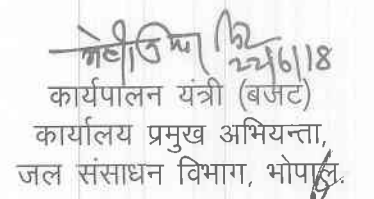 22/6/18
कार्यपालन यंत्री (बजट)
कार्यालय प्रमुख अभियन्ता,
जल संसाधन विभाग, भोपाल.